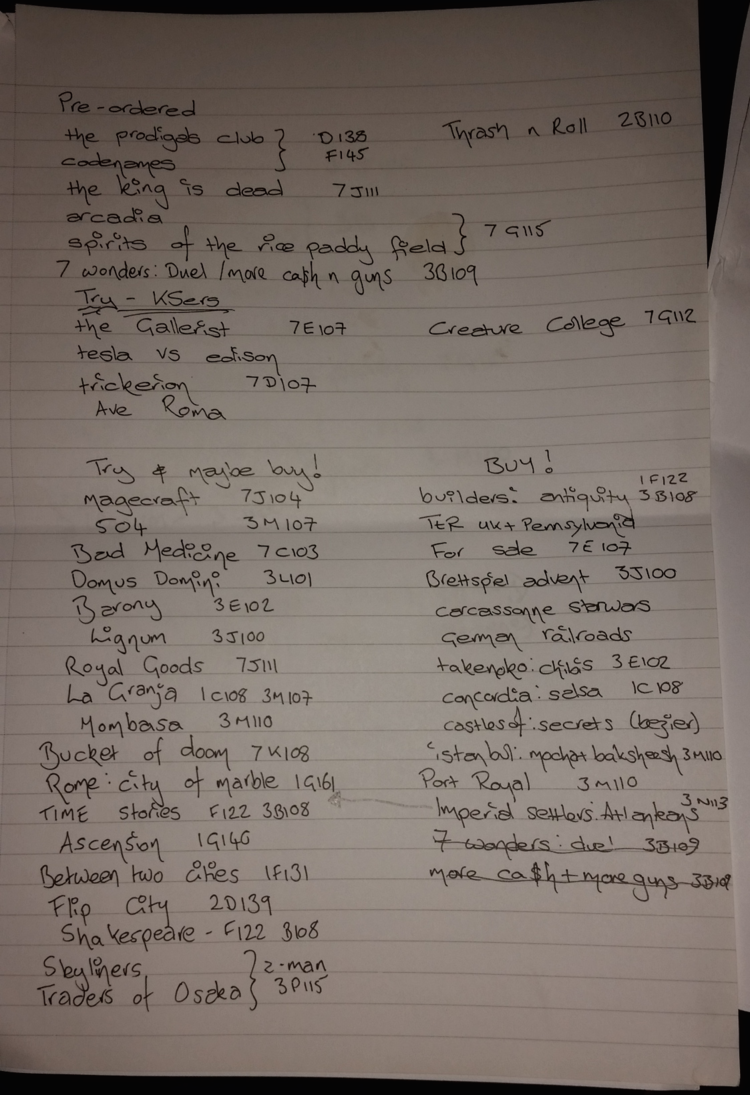 Pre-ordered
the prodigals club } D138
codenames F145
Thrash n Roll 2B110
the king is dead 7J111
arcadia
spirits of the rice paddy field } 7G115
7 wonders: Duel /more ca$h n guns 3B109
Try - KSers
the Gallerist 7E107
Creature College 7G112
tesla vs edison
trickerion 7D107
Ave Roma
Try & maybe buy!
magecraft 7J104
504 3M107
Bad Medicine 7C103
Domus Domini 3L101
Barony 3E102
Lignum 3J100
Royal Goods 7J111
La Granja 1C108 3M107
Mombasa 3M110
Bucket of doom 7K108
Rome: city of marble 1G161
TIME stories F122 3B108
Ascension 1G140
Between two cities 1F131
Flip City 2D139
Shakespeare - F122 B108
Skyliners } z-man
Traders of Osaka 3P115
BUY!
1F122
builders: antiquity 3B108
TtR uk + Pennsylvania
For sale 7E107
Brettspiel advent 3J100
carcassonne starwars
German railroads
takenoko: chibis 3E102
concordia: salsa 1C108
castles of: secrets (bezier)
istanbul: mocha + baksheesh 3M110
Port Royal 3M110
3N113
Imperial settlers: Atlanteans
7 wonders: duel 3B109
more ca$h + more guns 3B109